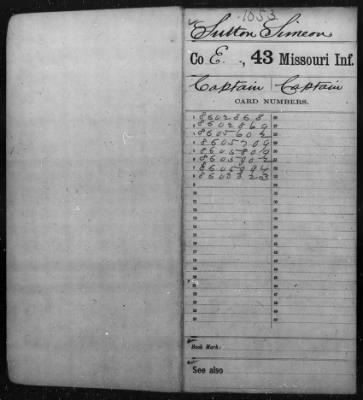 1053
Sutton Simeon
Co E., 43 Missouri Inf.
Captain Captain
CARD NUMBERS.
1 8602868
2 8602869
3 8605604
4 8605709
5 8605809
6 8605902
7 8605994
8 8605323
Book Mark:
See also